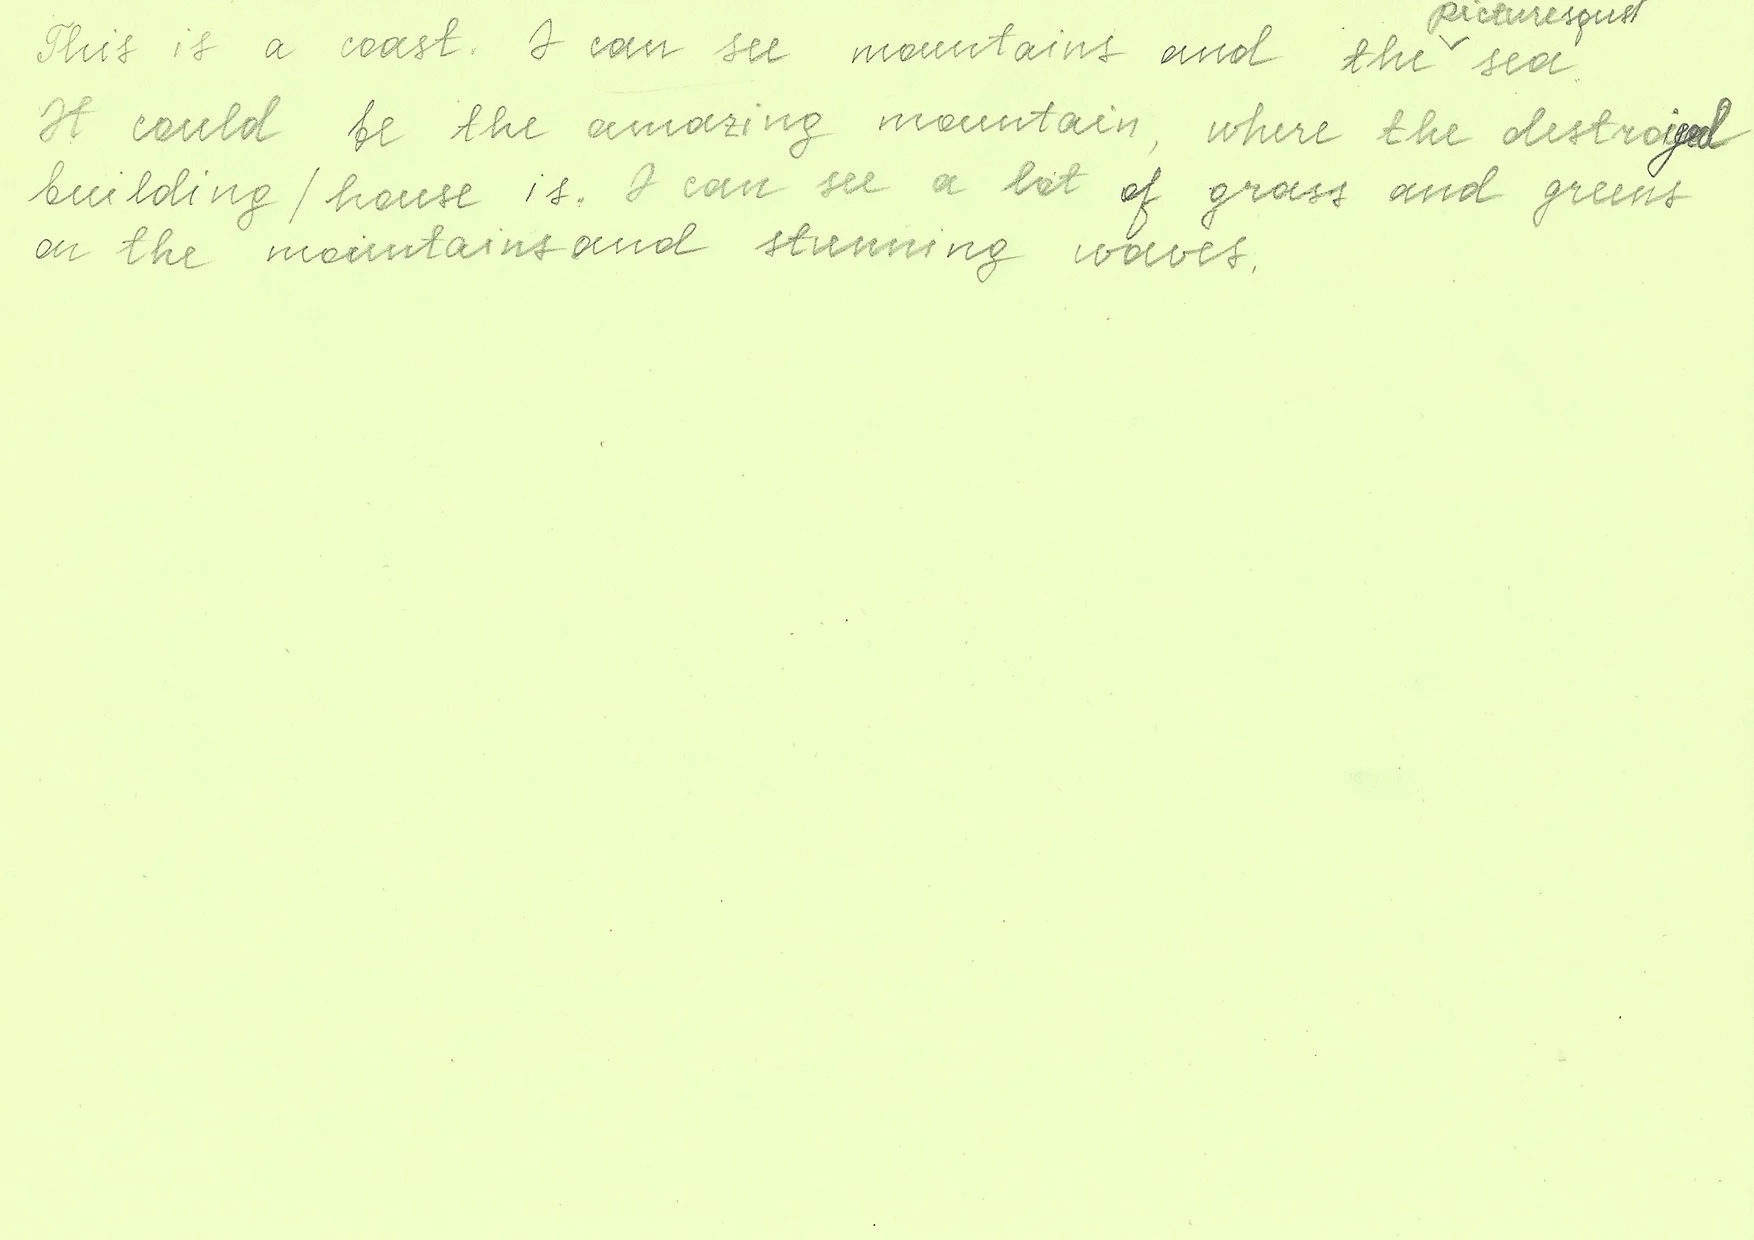 This is a coast. I can see mountains and the picturesque sea.
It could be the amazing mountain, where the destroyed
building/house is. I can see a lot of grass and greens
on the mountains and stunning waves.